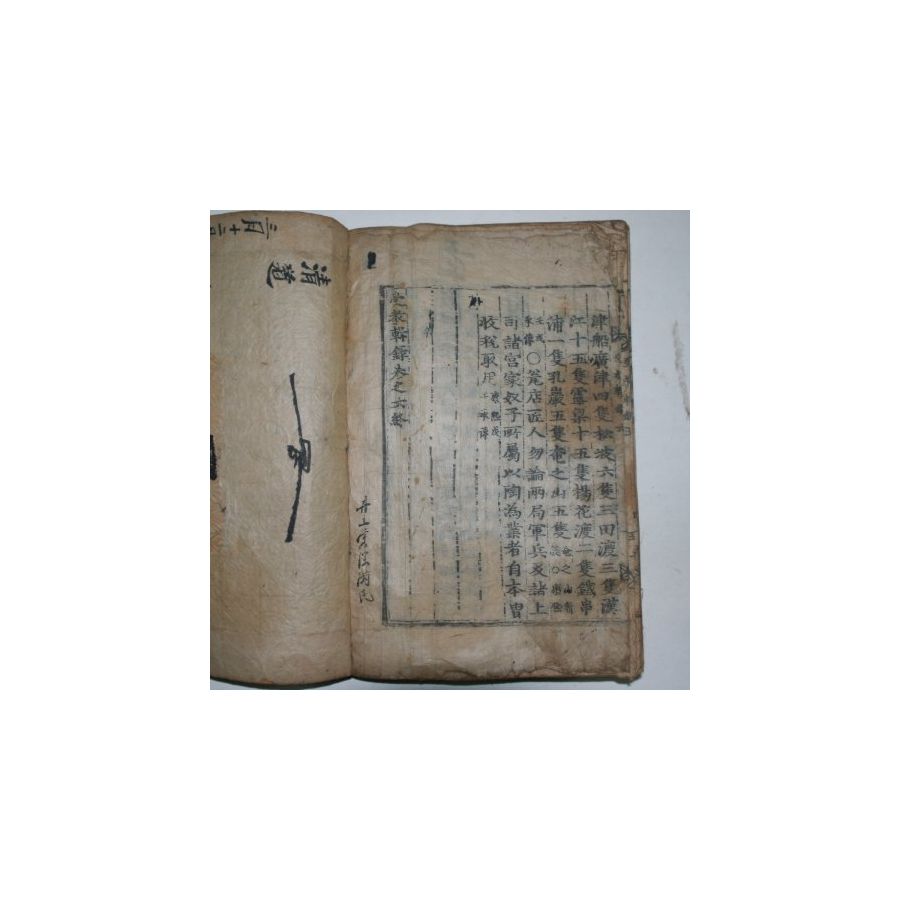 津船廣津四隻松波六隻三田渡三隻漢
江十五隻露梁十五隻楊花渡二隻鐵串
浦一隻孔巖五隻奄之山五隻
承傳〇瓮店匠人勿論兩局軍兵及諸上
司諸宮家奴子所屬以陶為業者自本曹
收稅取用
受敎輯錄卷之六終
井上
清道
三月十二日